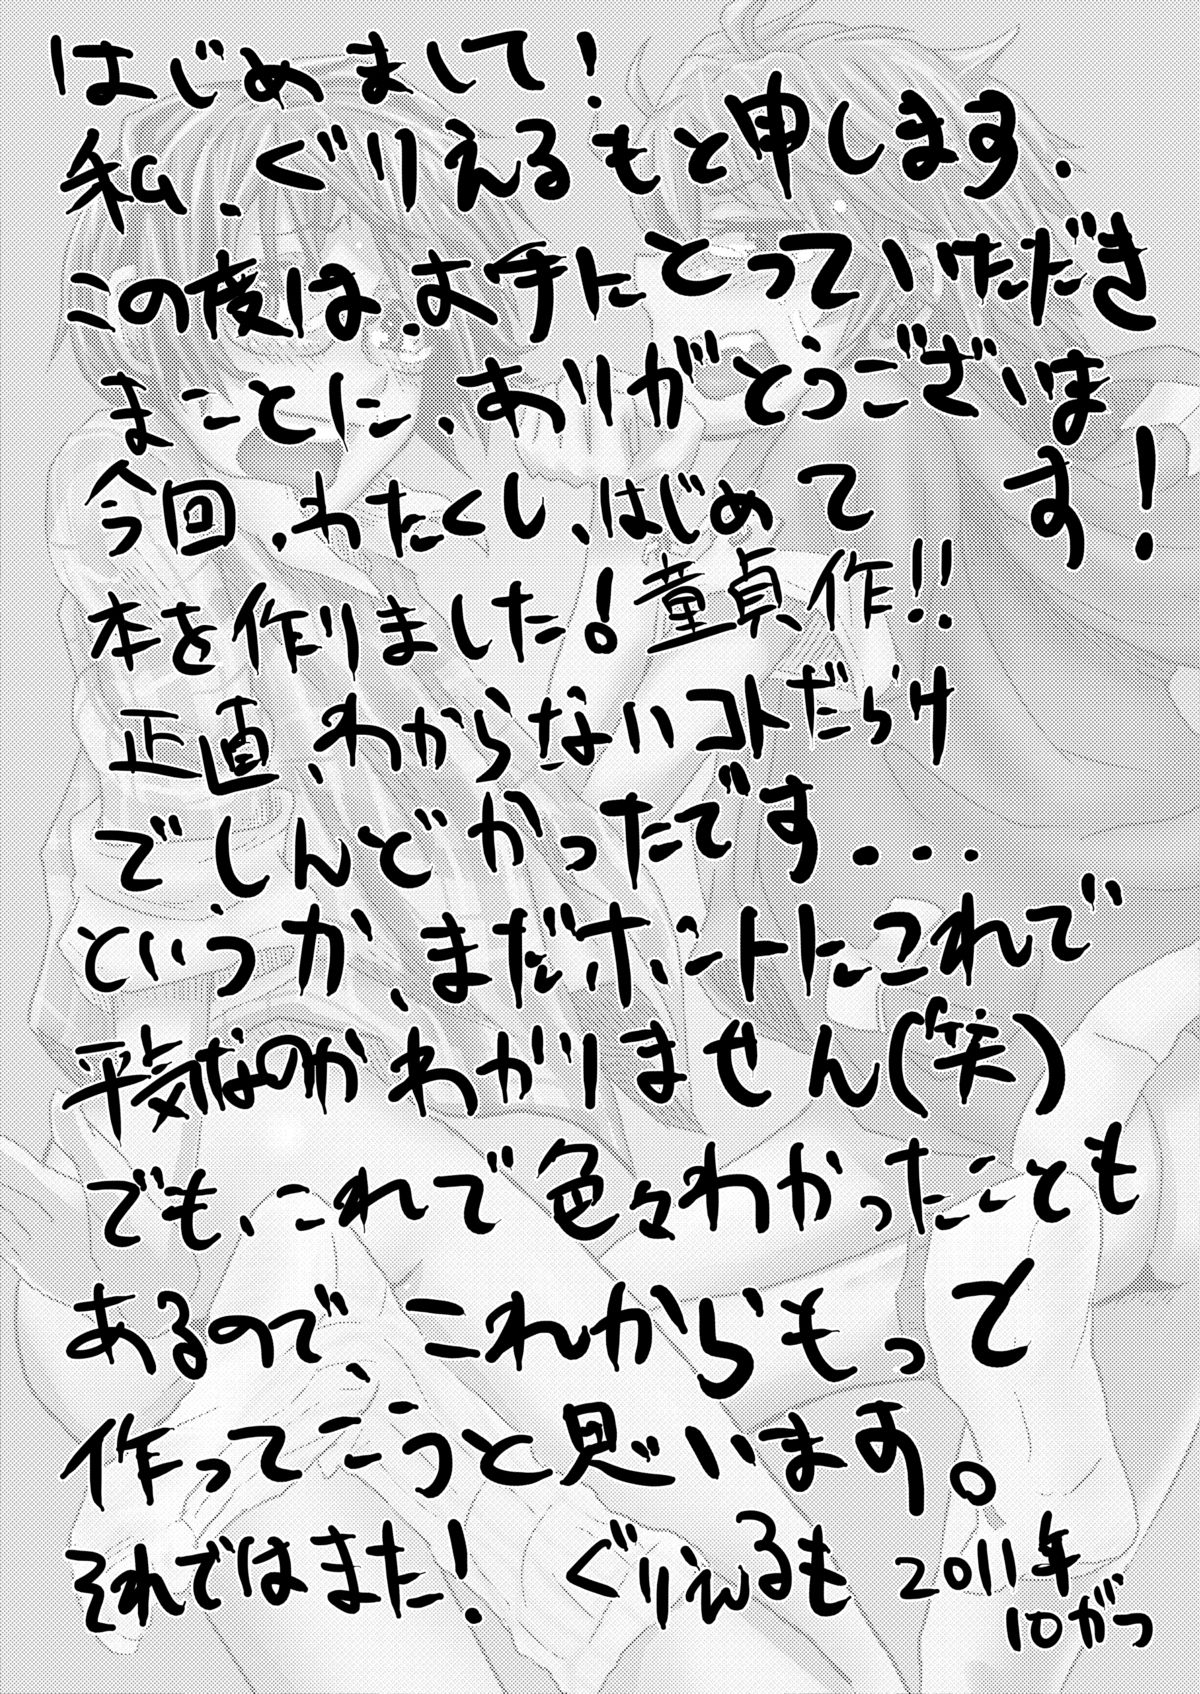 はじめまして!
私、ぐりえるもと申します.
この度は、お手にとっていただき
まことに、ありがとうございま
す!
今回、わたくし、はじめて
本を作りました!童貞作!!
正直、わからないコトだらけ
でしんどかったです...
というか、まだホントにこれで
平気なのかわかりません(笑)
でも、これで色々わかったことも
あるので、これからもっと
作ってこうと思います。
それではまた! ぐりえるも 2011年
10がつ